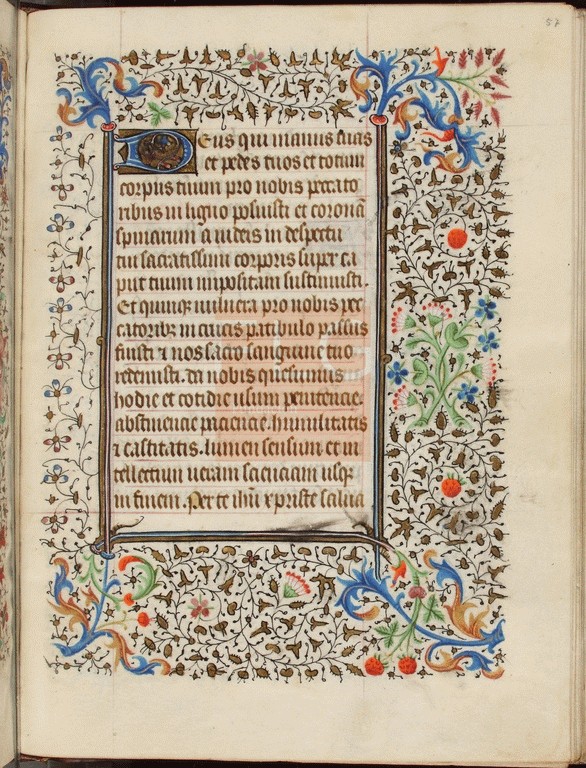 57
Deus qui manus tuas
et pedes tuos et totum
corpus tuum pro nobis peccato
ribus in ligno posuisti et coronā
spinarum a iudeis in despectu
tui sacratissimi corporis super ca
put tuum impositam sustinuisti.
Et quinq; vulnera pro nobis pec
catoribz in crucis patibulo passus
fuisti ⁊ nos sacro sanguine tuo
redemisti. da nobis quesumus
hodie et cotidie usum penitencie
abstinencie paciencie. humilitatis
⁊ castitatis. lumen sensum et in
tellectum ueram scienciam usq;
in finem. Per te ihū xpriste salua